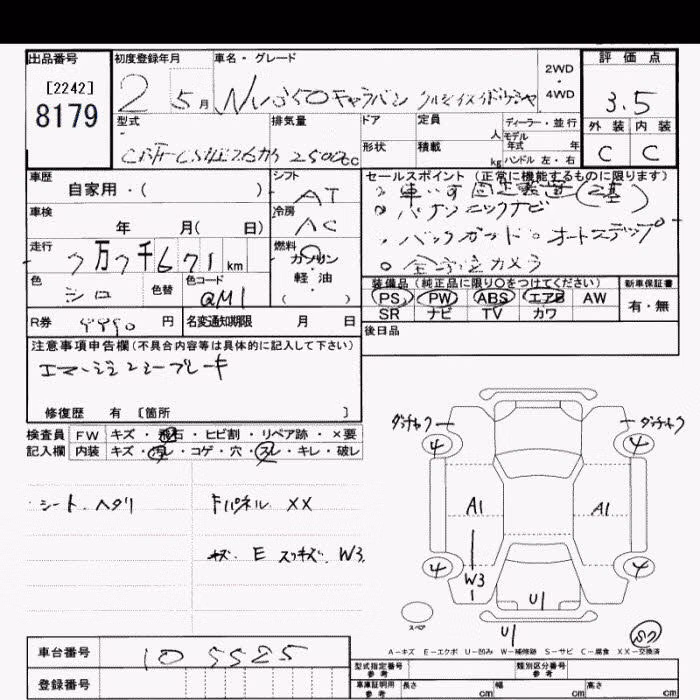 出品番号
[2242]
8179
初度登録年月
2 5月
車名・グレード
NV350キャラバン
2WD
・
4WD
評価点
3.5
外装 内装
C C
型式
排気量
2500cc
ドア
形状
定員 人
積載 kg
ディーラー・並行
モデル年式 年
ハンドル 左・右
車歴
自家用・( )
シフト
AT
車検
年 月( 日)
冷房
AC
走行
7万7千671km
燃料
ガソリン
・
軽油
( )
色
シロ
色替
色コード
QM1
R券 9990円
名変通知期限 月 日
セールスポイント(正常に機能するものに限ります)
。車いす固定装置(2基)
。パナソニックナビ
。バックガード。オートステップ
。全方位カメラ
装備品(純正品に限り○をつけてください)
PS PW ABS エアB AW
SR ナビ TV カワ
新車保証書
有・無
後日品
注意事項申告欄(不具合内容等は具体的に記入して下さい)
エマージェンシーブレーキ
修復歴 有 〔箇所 〕
検査員記入欄
FW キズ・飛石・ヒビ割・リペア跡・×要
内装 キズ・汚レ・コゲ・穴・スレ・キレ・破レ
シート、ヘタリ
Fパネル XX
キズ、E スリキズ、W3
ダンチャク
ダンチャク
4
4
A1
A1
4
4
W3
U1
U1
スペア
S7
A-キズ E-エクボ U-凹み W-補修跡 S-サビ C-腐食 XX-交換済
車台番号 105525
登録番号
型式指定番号 参考
類別区分番号 参考
車庫証明用 参考
長さ cm
幅 cm
高さ cm